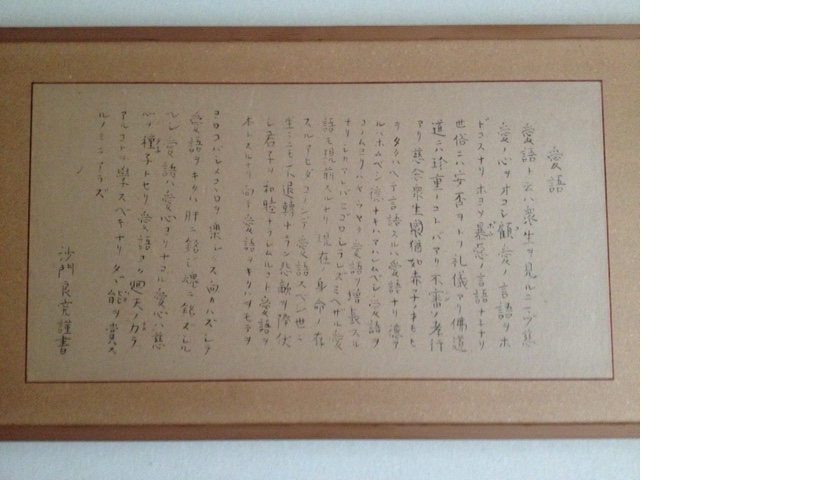 愛語
愛語ト云ハ衆生ヲ見ルニマヅ慈
愛ノ心ヲオコシ顧愛ノ言語ヲホ
ドコスナリホヨソ暴惡ノ言語ナキナリ
世俗ニハ安否ヲトフ礼儀アリ佛道
道ニハ珍重ノコトバアリ不審ノ孝行
アリ慈念衆生猶如赤子ノオモヒ
ヲタクハヘテ言語スルハ愛語ナリ徳ア
ルハホムベシ徳ナキハアハレムベシ愛語ヲ
コノムヨリハヤウヤク愛語ヲ増長スル
ナリシカアレバヒゴロシラレズミヘザル愛
語モ現前スルナリ現在ノ身命ノ存
スルアヒダコノンデ愛語スベシ世々
生々ニモ不退轉ナラン怨敵ヲ降伏
シ君子ヲ和睦ナラシムルコト愛語ヲ
本トスルナリ向テ愛語ヲキクハヲモテヲ
ヨロコバシメココロヲ樂シクス向カハズシテ
愛語ヲキクハ肝ニ銘シ魂ニ銘ズシル
ベシ愛語ハ愛心ヨリオコル愛心ハ慈
心ヲ種子トセリ愛語ヨク廻天ノカラ
アルコトヲ學スベキナリタヾ能ヲ賞ス
ルノミニアラズ
沙門良寛謹書